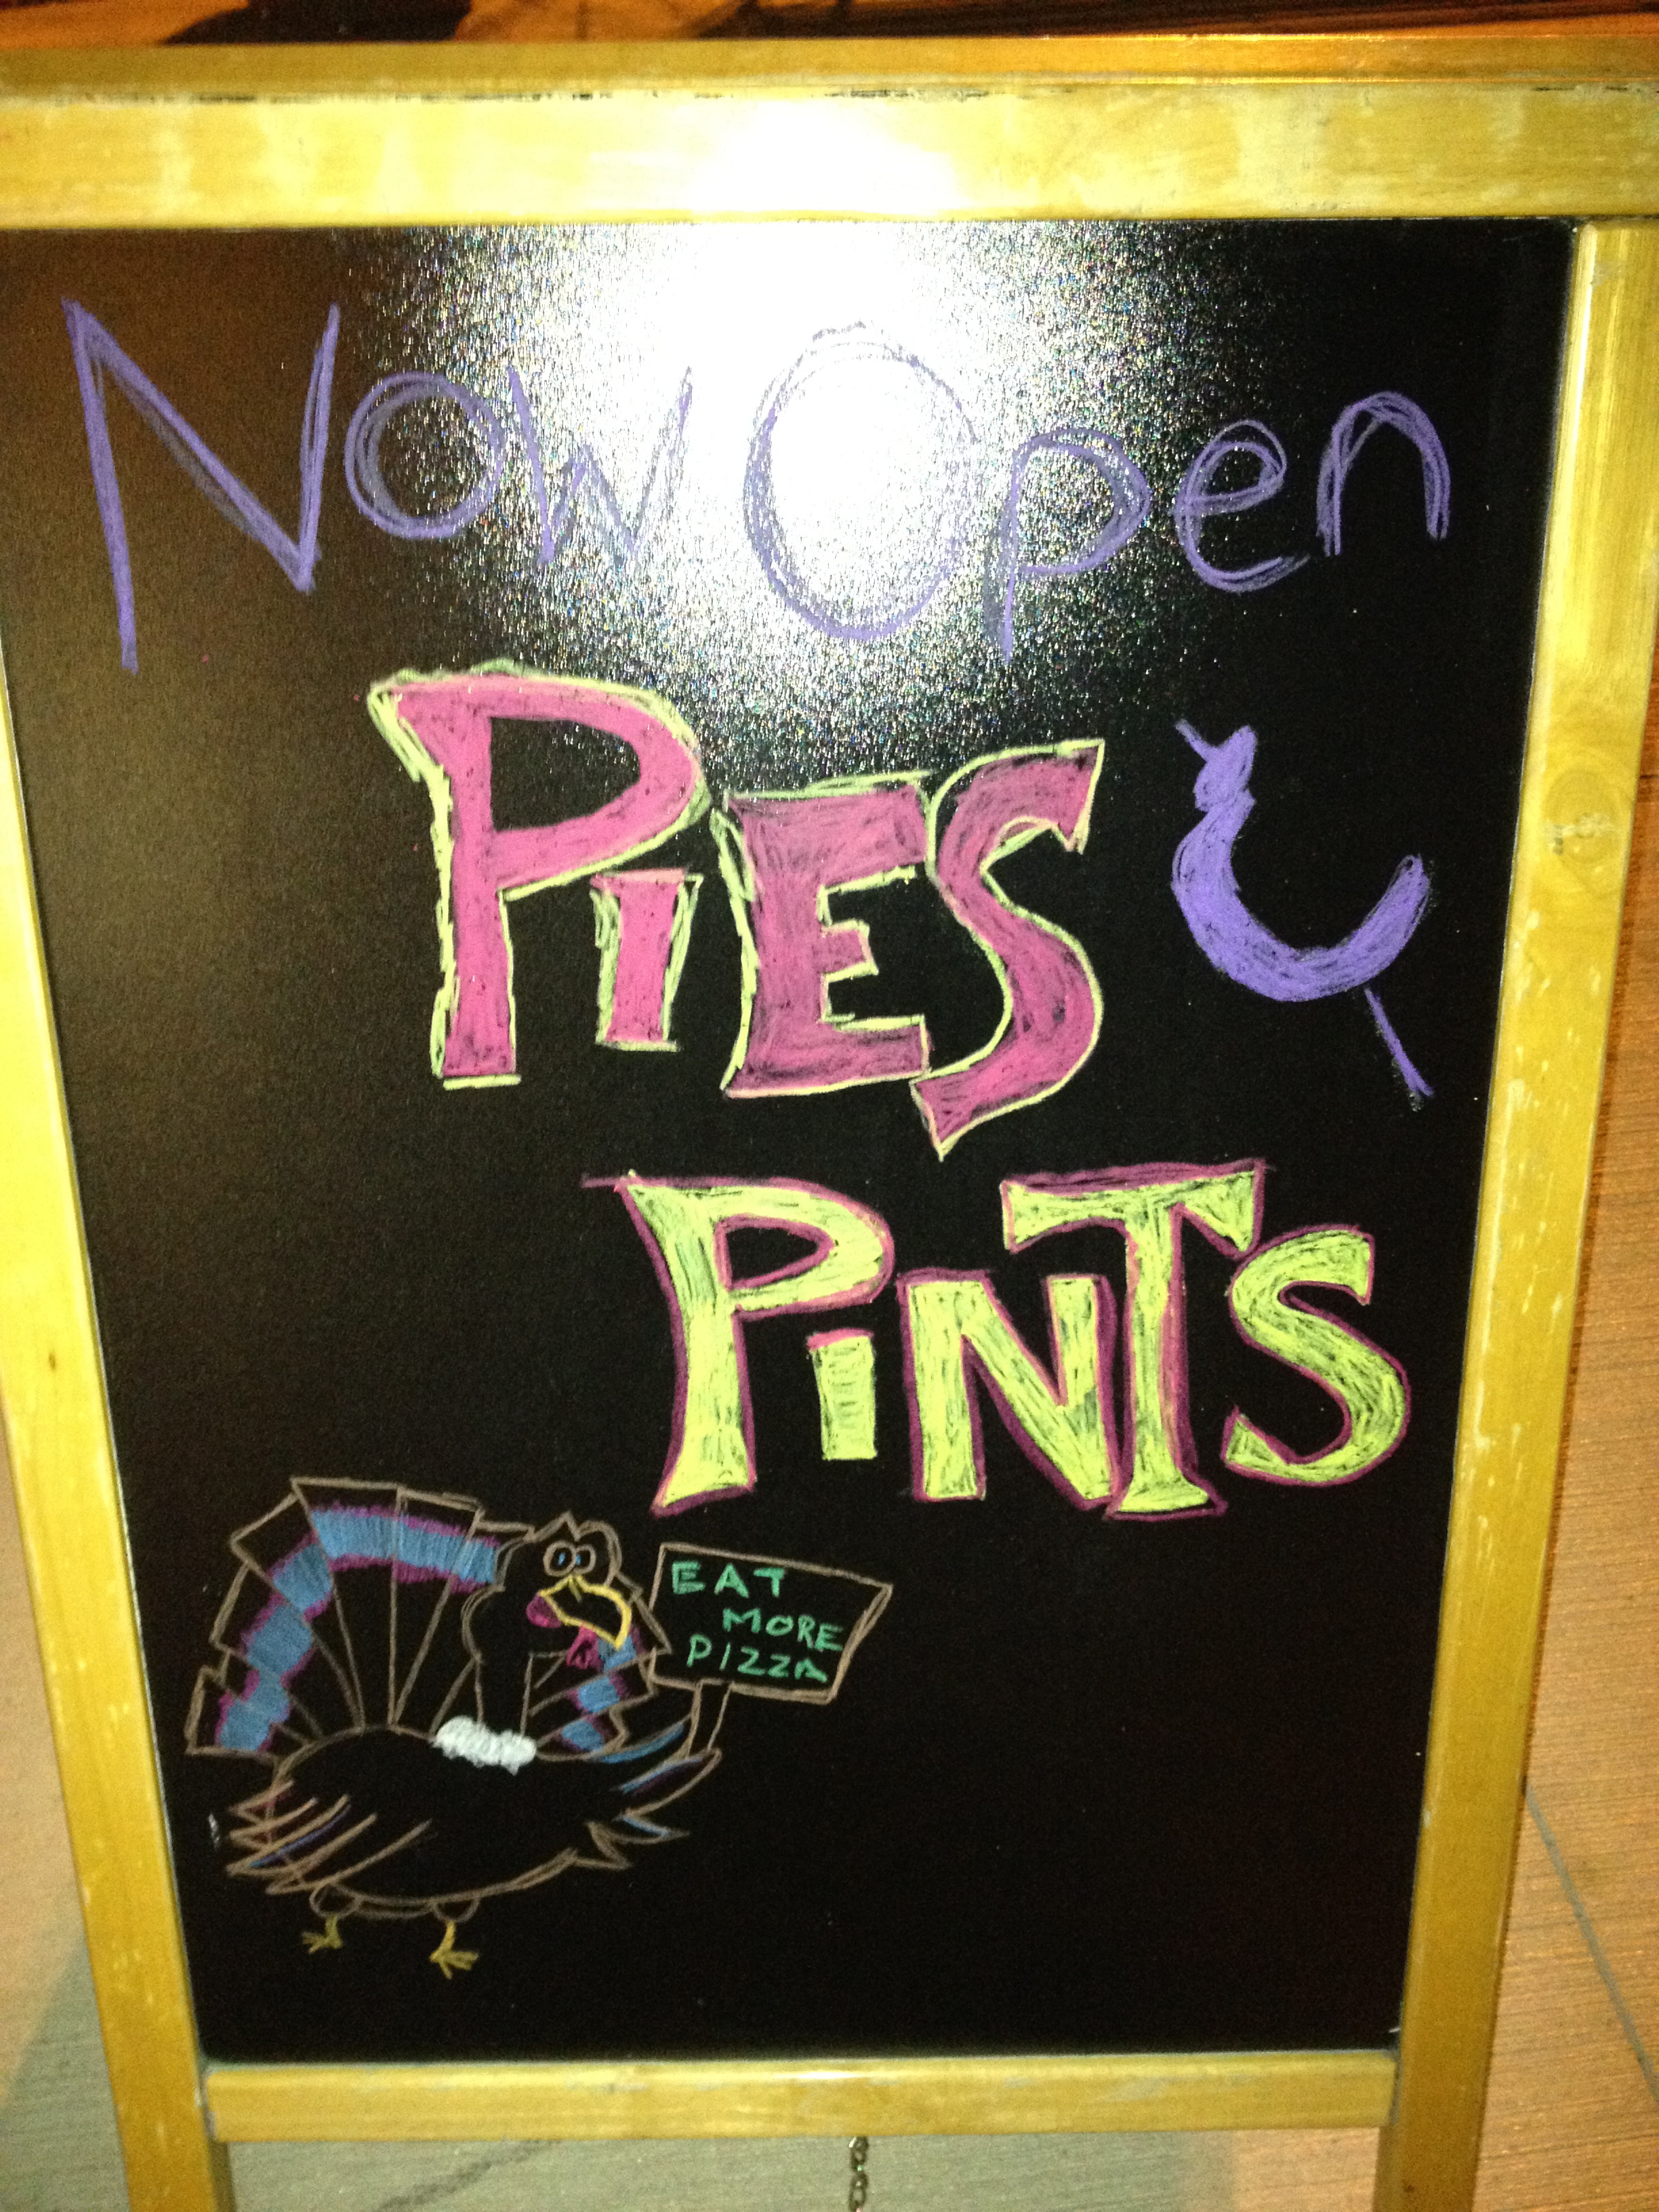 Now Open
PiES &
PiNTS
EAT
MORE
PIZZA